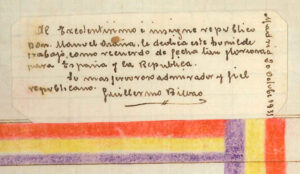 Al Excelentísimo e insigne republico
Don Manuel Azaña, le dedica este humilde
trabajo, como recuerdo de fecha tan gloriosa
para España y la República.
Su mas fervoroso admirador y fiel
republicano.
Guillermo Bilbao
Madrid